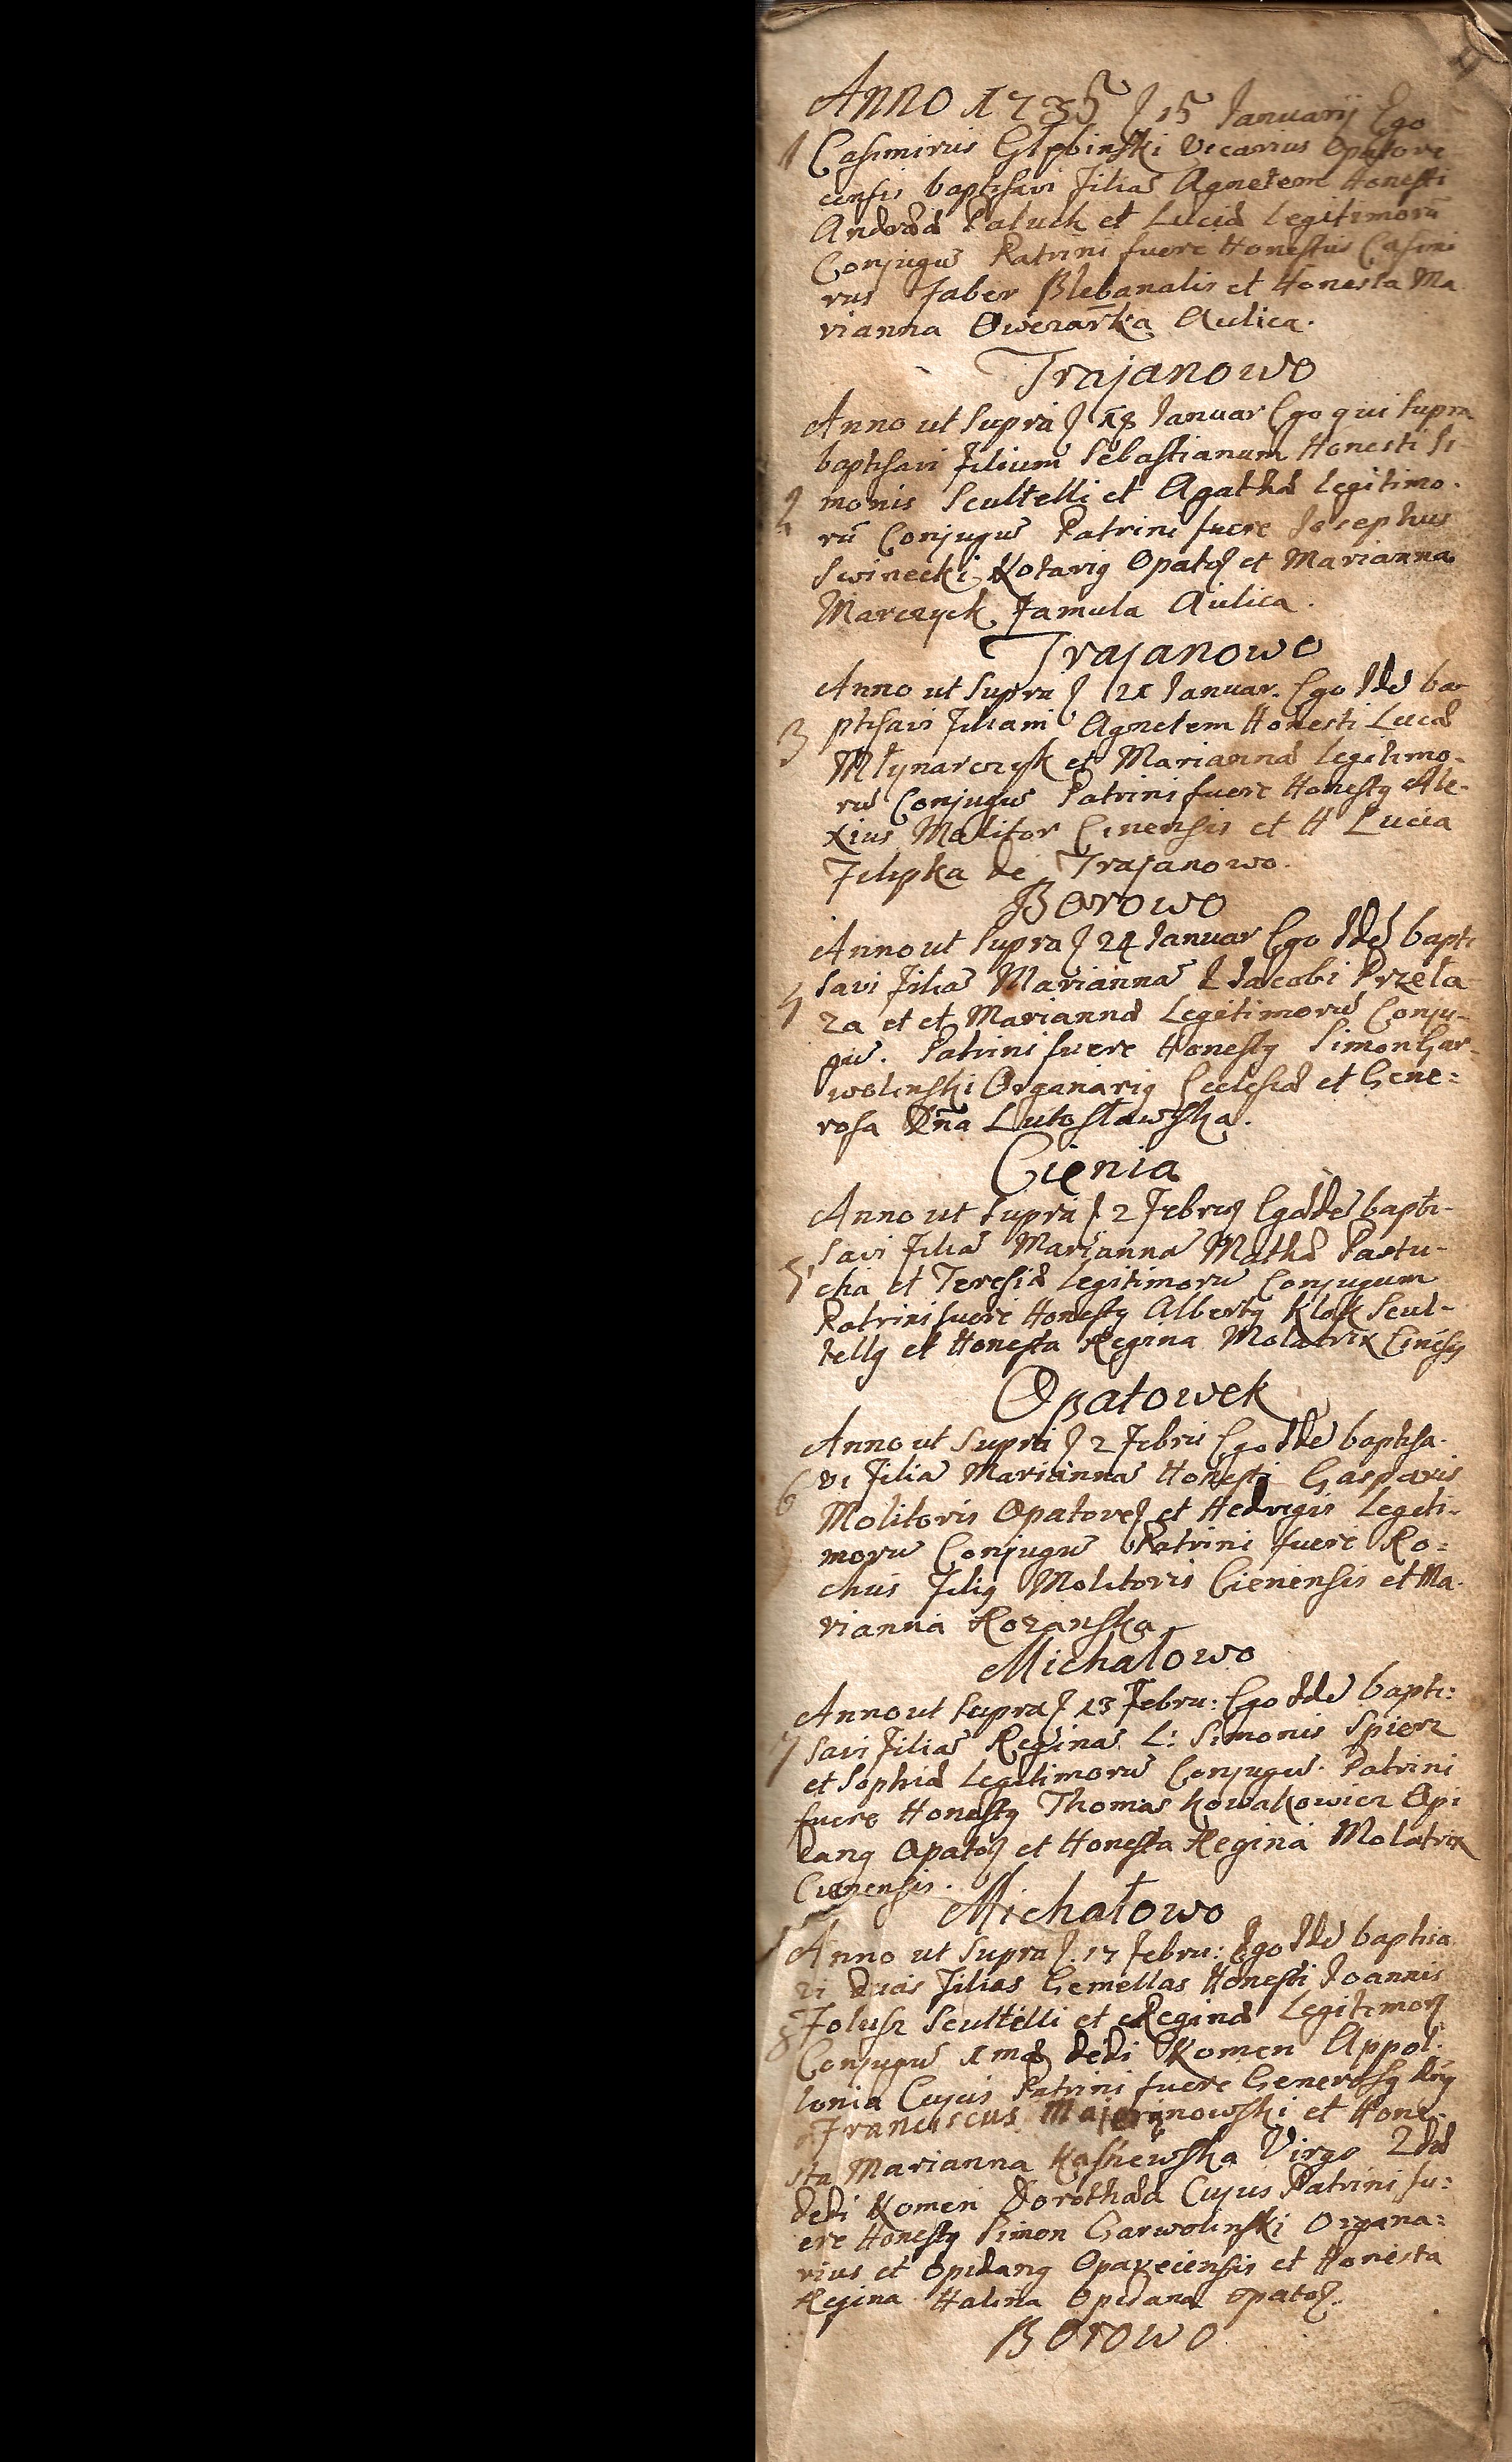 Anno 1735 d 15 Januarij Ego
1 Casimirus Głębinski Vicarius Opatove
censis baptisavi Filiã Agnetem Honesti
Andreæ Paluch et Luciæ Legitimorũ
Conjugũ Patrini fuere Honestus Casimi
rus Faber Plebanalis et Honesta Ma
rianna Owczarka Aulica.
Trajanowo
Anno ut Supra d 18 Januar Ego qui supra
baptisavi Filium Sebastianum Honesti Si
2 monis Scultelli et Agathæ Legitimo.
rũ Conjugũ Patrini fuere Josephus
Swinecki Notariq Opatoȝ et Marianna
Marczyck Famula Aulica.
Trajanowo
Anno ut Supra d 21 Januar. Ego Idẽ ba
3 ptisavi Filiam Agnetem Honesti Lucæ
Młynarczyk et Mariannæ Legitimo-
rũ Conjugũ Patrini fuere Honestq Ale-
xius Molitor Cinensis et H Lucia
Filipka de Trajanowo.
Borowo
Anno ut Supra d 24 Januar Ego Idẽ bapti
4 savi Filiã Mariannã L Jacobi Przeła
za et et Mariannæ Legitimorũ Conju-
gũ. Patrini fuere Honestq Simon Gar-
wolinski Organariq Ecclesiæ et Gene=
rosa Dña Lutosławska.
Cienia
Anno ut Supra d 2 Febrȝ Ego Idẽ bapti-
5 savi Filiã Mariannã Mathæ Pastu-
cha et Teresiæ Legitimorũ Conjugum
Patrini fuere Honestq Albertq Klok Scul-
tellq et Honesta Regina Molatrix Cinēsis
Opatowek
Anno ut Supra d 2 Febris Ego Idẽ baptisa-
6 vi Filiã Mariannã Honesti Gasparis
Molitoris Opatoveȝ et Hedvigis Legiti-
morũ Conjugũ Patrini fuere Ro=
chus Filiq Molitoris Cienensis et Ma-
rianna Rozanska
Michałowo
Anno ut Supra d 13 Febru: Ego Idẽ bapti:
7 savi Filiã Reginã L: Simonis Spierz
et Sophiæ Legitimorũ Conjugũ. Patrini
fuere Honestq Thomas Kowalkowicz Opi
danq Opatoȝ et Honesta Regina Molatrix
Cienensis.
Michałowo
Anno ut Supra d. 17 Febru: Ego Idẽ baptisa
vi duas Filias Gemellas Honesti Joannis
8 Folusz Scultelli et Reginæ Legitimoȝ
Conjugũ 1mæ dedi Nomen Appol:
lonia Cujus Patrini fuere Generosq Dñq
Franciscus Majeranowski et Hone-
sta Marianna Virgo 2dæ
dedi Nomen Dorothæa Cujus Patrini fu=
ere Honestq Simon Garwolinski Organa=
rius et Opidanq Opavecensis et Honesta
Regina Halina Opidana Opatoȝ.
Borowo